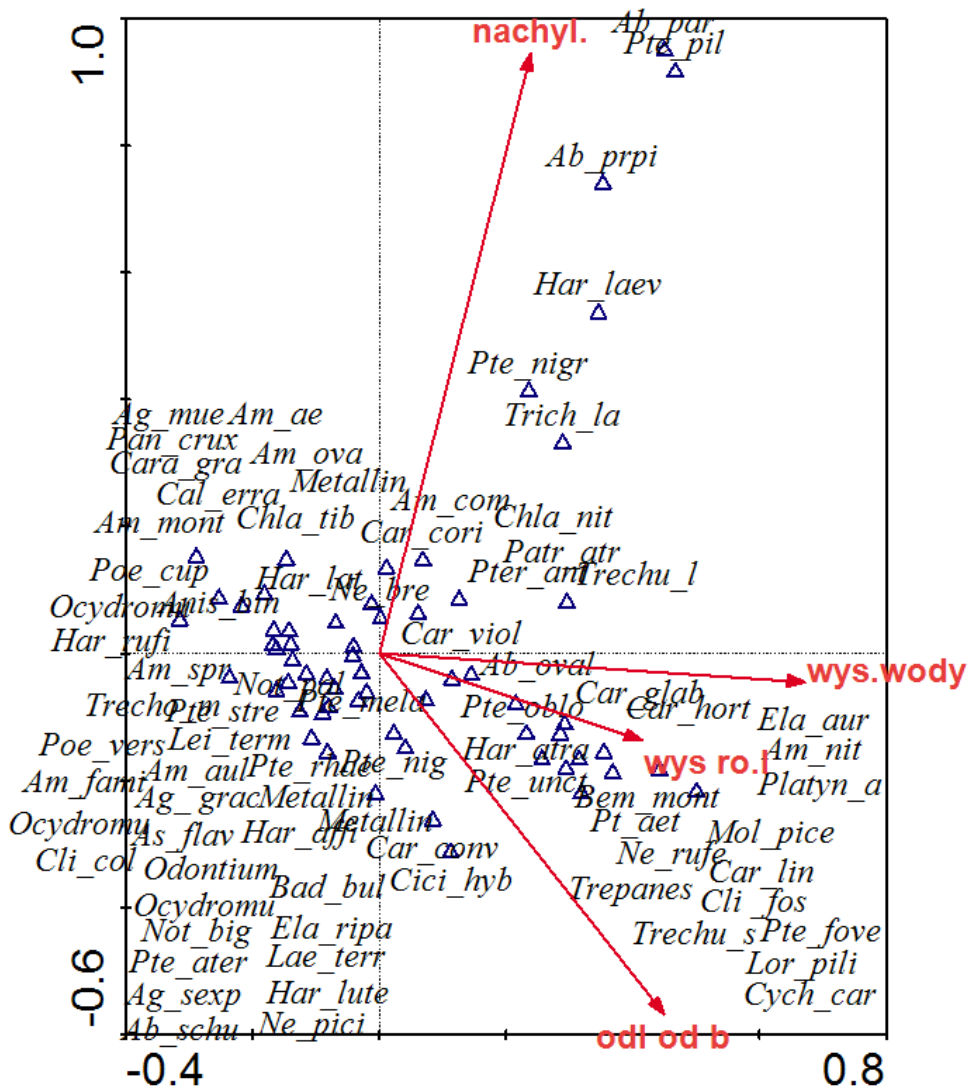 1.0
Ab_par
nachyl.
Pte_pil
Ab_prpi
Har_laev
Pte_nigr
Trich_la
Ag_mue Am_ae
Pan_crux
Cara_gra Am_ova
Cal_erra Metallin
Am_com
Am_mont Chla_tib Car_cori Chla_nit
Patr_atr
Poe_cup Har_lat Ne_bre Pter_ant Trechu_l
Ocydromu Anis_bin
Har_rufi Car_viol
Am_spr Not_pal Ab_oval wys.wody
Trecho_m Pte_stre Pte_mela Pte_oblo Car_glab Car_hort
Ela_aur
Poe_vers Lei_term Har_atra wys ro.l Am_nit
Am_fami Am_aul Pte_rhae Pte_nig Pte_unct Platyn_a
Ag_grac Metallin Bem_mont
Ocydromu As_flav Har_affi Metallin Pt_aet Mol_pice
Cli_col Odontium Car_conv Ne_rufe Car_lin
Bad_bul Cici_hyb Trepanes Cli_fos
Ocydromu
Not_big Ela_ripa Trechu_s Pte_fove
Pte_ater Lae_terr Lor_pili
Ag_sexp Har_lute Cych_car
Ab_schu Ne_pici odl od b
-0.6
-0.4 0.8